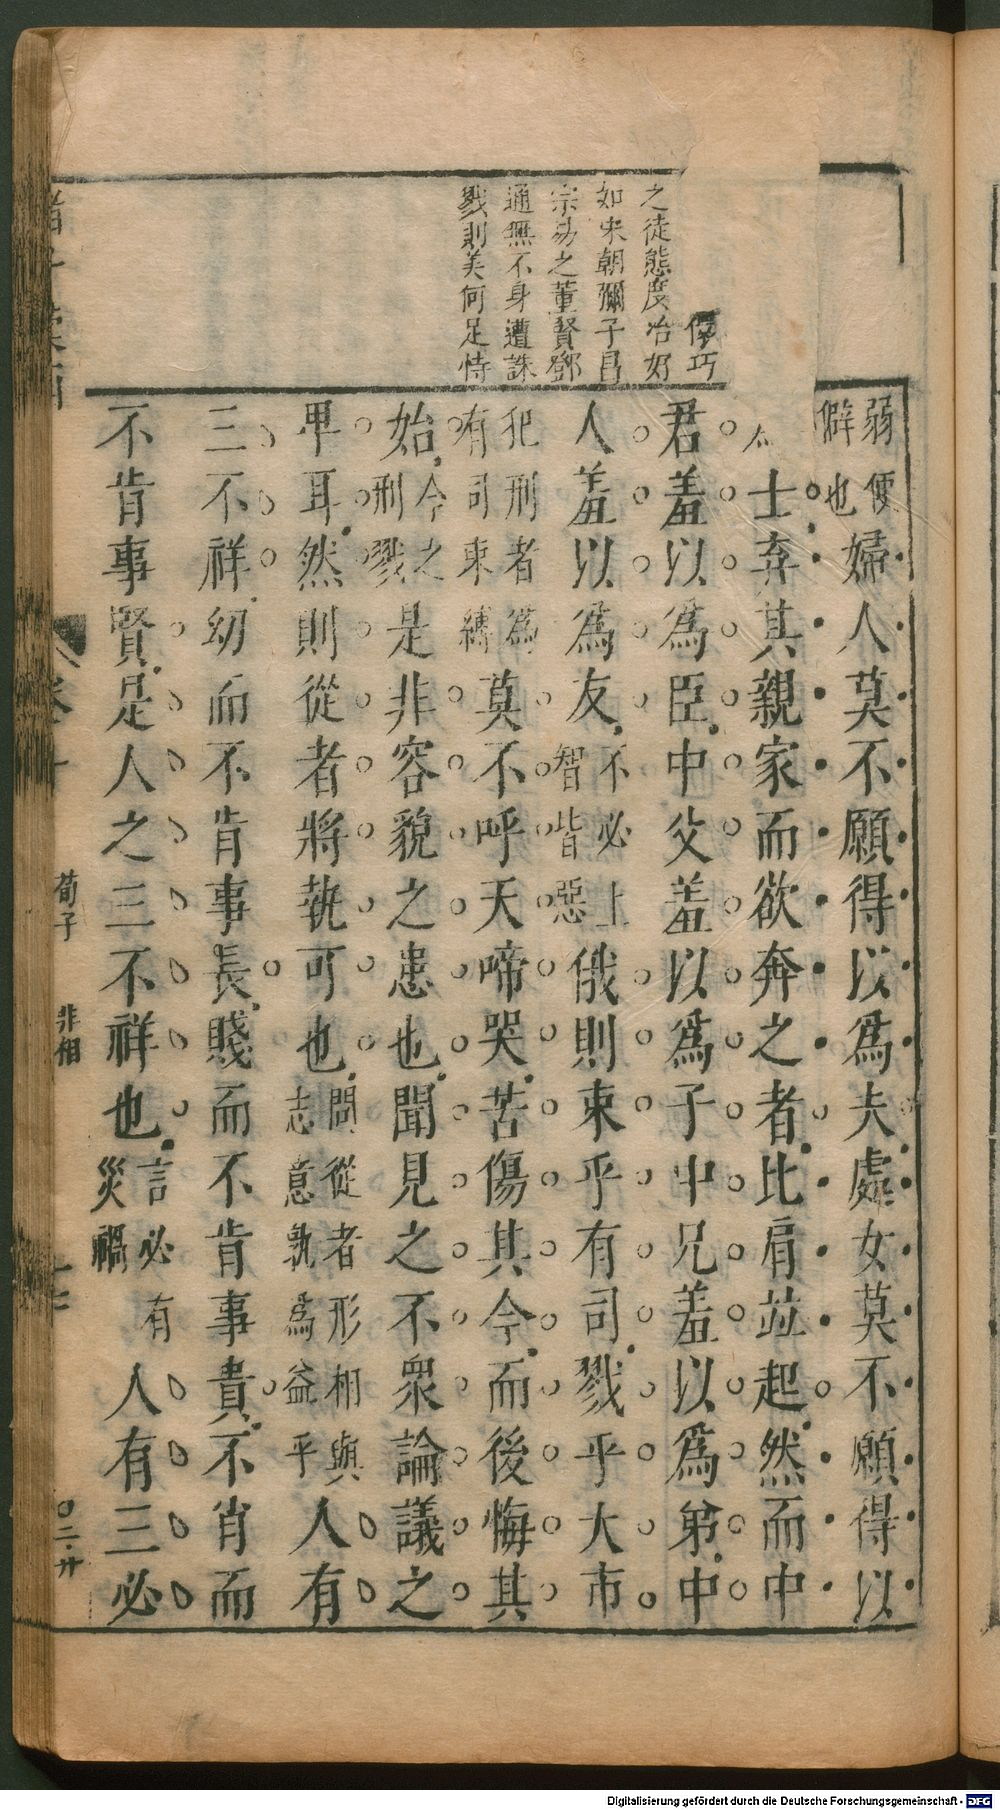 儇巧
之徒態度冶好
如宋朝彌子昌
宗易之董賢鄧
通無不身遭誅
戮則美何足恃
弱便
僻也
婦人莫不願得以爲夫處女莫不願得以
士弃其親家而欲奔之者比肩竝起然而中
君羞以爲臣中父羞以爲子中兄羞以爲弟中
人羞以爲友
不必上
智皆惡
俄則束乎有司戮乎大市
犯刑者爲
有司束縛
莫不呼天啼哭苦傷其今而後悔其
始
今之
刑戮
是非容貌之患也聞見之不衆論議之
卑耳然則從者將孰可也
問從者形相與
志意孰爲益乎
人有
三不祥幼而不肯事長賤而不肯事貴不肖而
不肯事賢是人之三不祥也
言必有
災禍
人有三必
荀子
非相
Digitalisierung gefördert durch die Deutsche Forschungsgemeinschaft - DFG